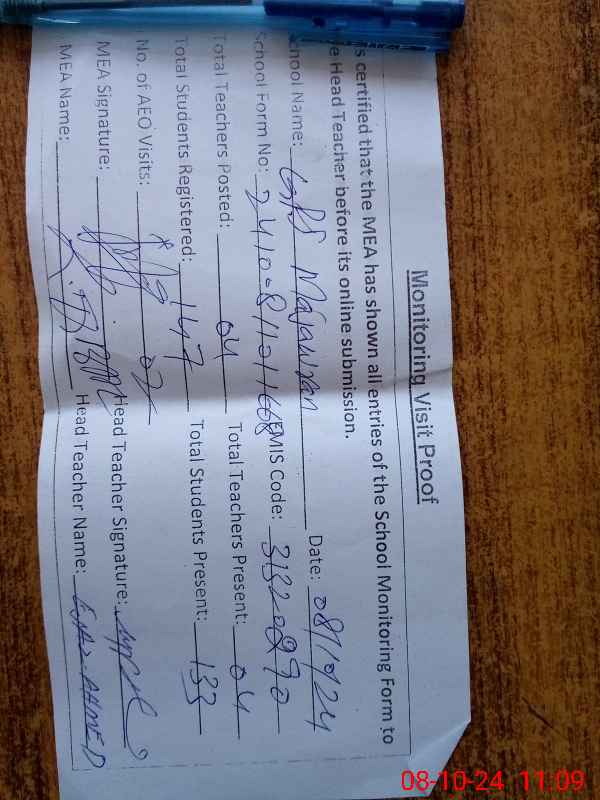 Monitoring Visit Proof
s certified that the MEA has shown all entries of the School Monitoring Form to
e Head Teacher before its online submission.
chool Name: GPS Date: 08/10/24
School Form No: MIS Code: 31320970
Total Teachers Posted: 04 Total Teachers Present: 04
Total Students Registered: 147 Total Students Present: 133
No. of AEO Visits: 02
MEA Signature: Head Teacher Signature:
MEA Name: Head Teacher Name: AHMED
08-10-24 11:09